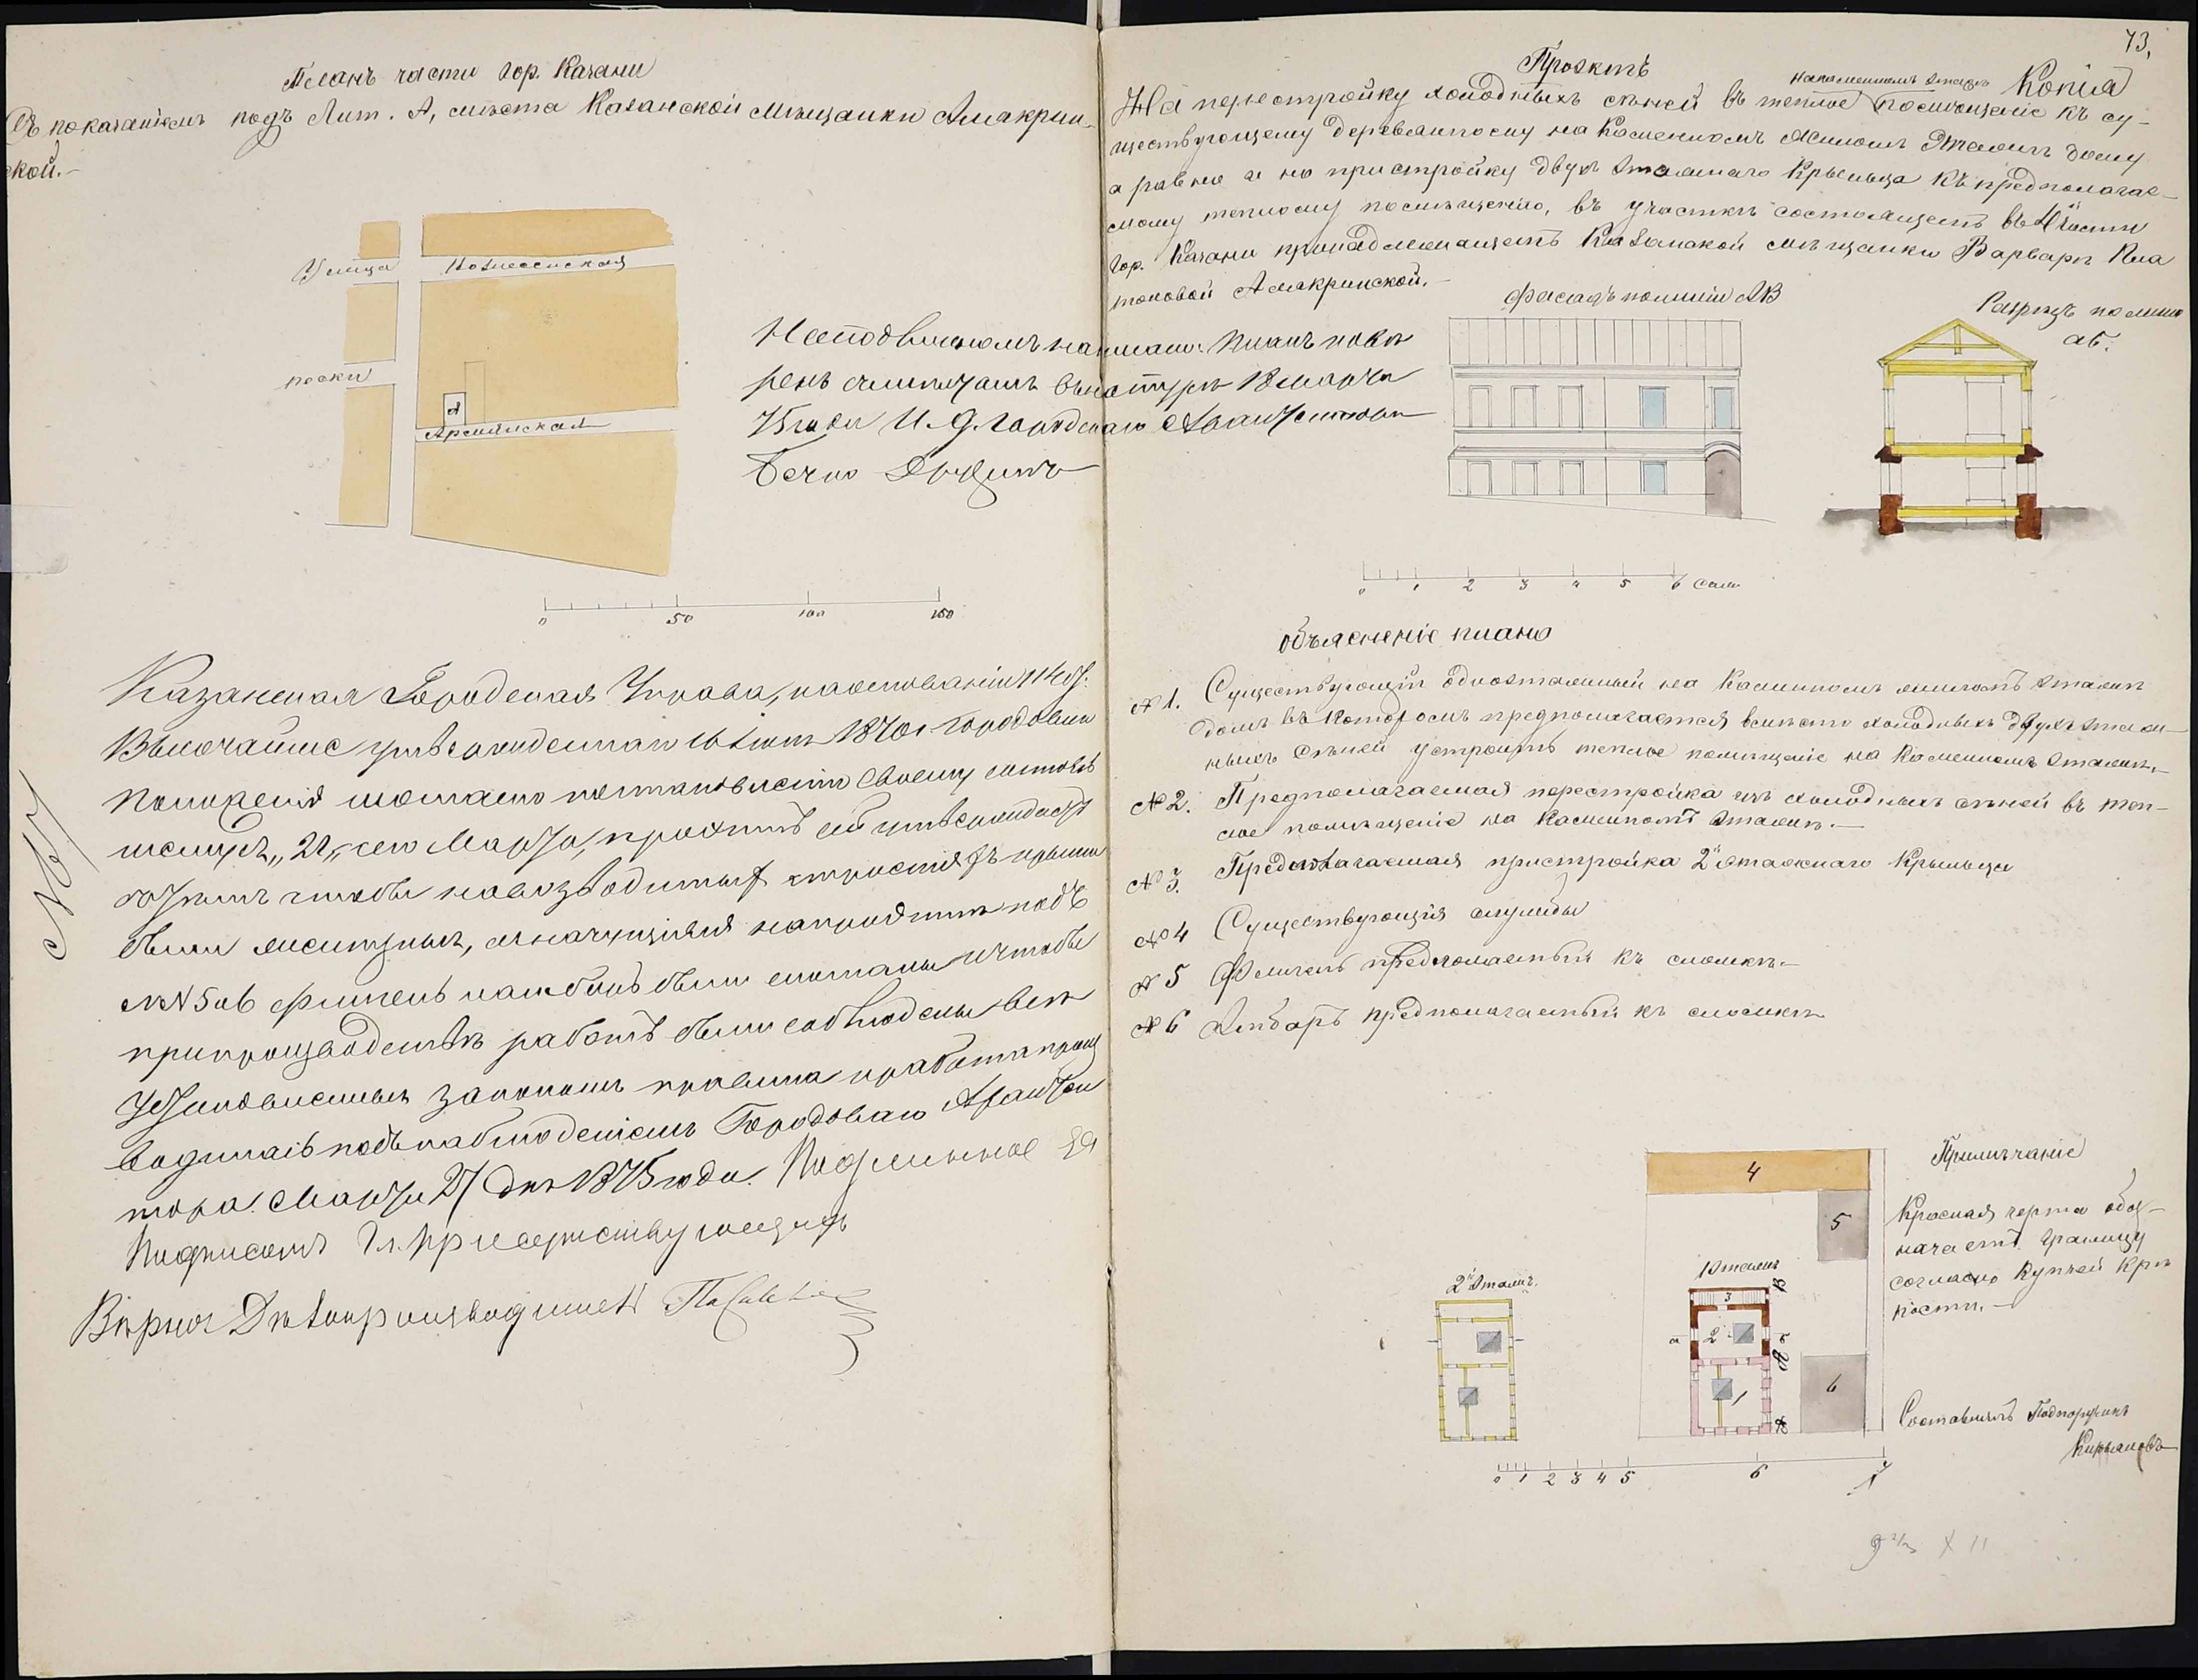 Планъ части гор. Казани
Съ показаніемъ подъ Лит. А, мѣста Казанской мѣщанки Амакрин-
ской.-
Улица Вознесенская
А
Арсийская
0 50 100 150
На подлинномъ написано: Планъ повѣ
ренъ съ натурѣ 18 марта
75 года И. Д. Городскаго Архитектора
Казанская Городская Управа, на основаніи 114 ст.
Высочайше утвержденнаго 16 Іюня 1870 г. Городоваго
Положенія согласно постановленію своему состояв
шемуся „21„ сего Марта, проэктъ сей утверждаетъ
съ тѣмъ чтобы на возводимыхъ строеніяхъ крыши
были желѣзныя, значущіяся на проэктѣ подъ
№№ 5 и 6 флигель и амбаръ были сломаны и чтобы
при производствѣ работъ были соблюдены всѣ
установленныя закономъ правила и работа произ
водилась подъ наблюденіемъ Городоваго Архитек
тора. Марта 27 дня 1875 года. Подлинное за
Подписомъ
Вѣрно: Дѣлопроизводитель
73.
Проэктъ
Копія
каменномъ этажѣ
На перестройку холодныхъ сѣней въ теплое помѣщеніе къ су-
ществующему деревянному на каменномъ жиломъ этажѣ дому
а равно и на пристройку двухъ этажнаго крыльца къ предполагае-
мому теплому помѣщенію, въ участкѣ состоящемъ въ части
гор. Казани принадлежащемъ Казанской мѣщанки Варвары Пла
тоновой Амакринской.-
Фасадъ по линіи АВ
Разрѣзъ по линіи
аб.
0 1 2 3 4 5 6 саж
Объясненіе плана
№ 1. Существующій одноэтажный на каменномъ жиломъ этажѣ
домъ въ которомъ предполагается вмѣсто холодныхъ двухъ этаж-
ныхъ сѣней устроить теплое помѣщеніе на каменномъ этажѣ.-
№ 2. Предполагаемая перестройка изъ холодныхъ сѣней въ теп-
лое помѣщеніе на каменномъ этажѣ.-
№ 3. Предполагаемая пристройка 2хъ этажнаго крыльца
№ 4 Существующія службы
№ 5 Флигель предполагаемый къ сломкѣ.-
№ 6 Амбаръ предполагаемый къ сломкѣ
4
5
1 этажъ
2й этажъ.
3
2
а б
1
6
Примѣчаніе
Красная черта обоз-
начаетъ границу
согласно купчей крѣ
пости.-
Составилъ Подпоручикъ
0 1 2 3 4 5 6
9 2/3 х 11